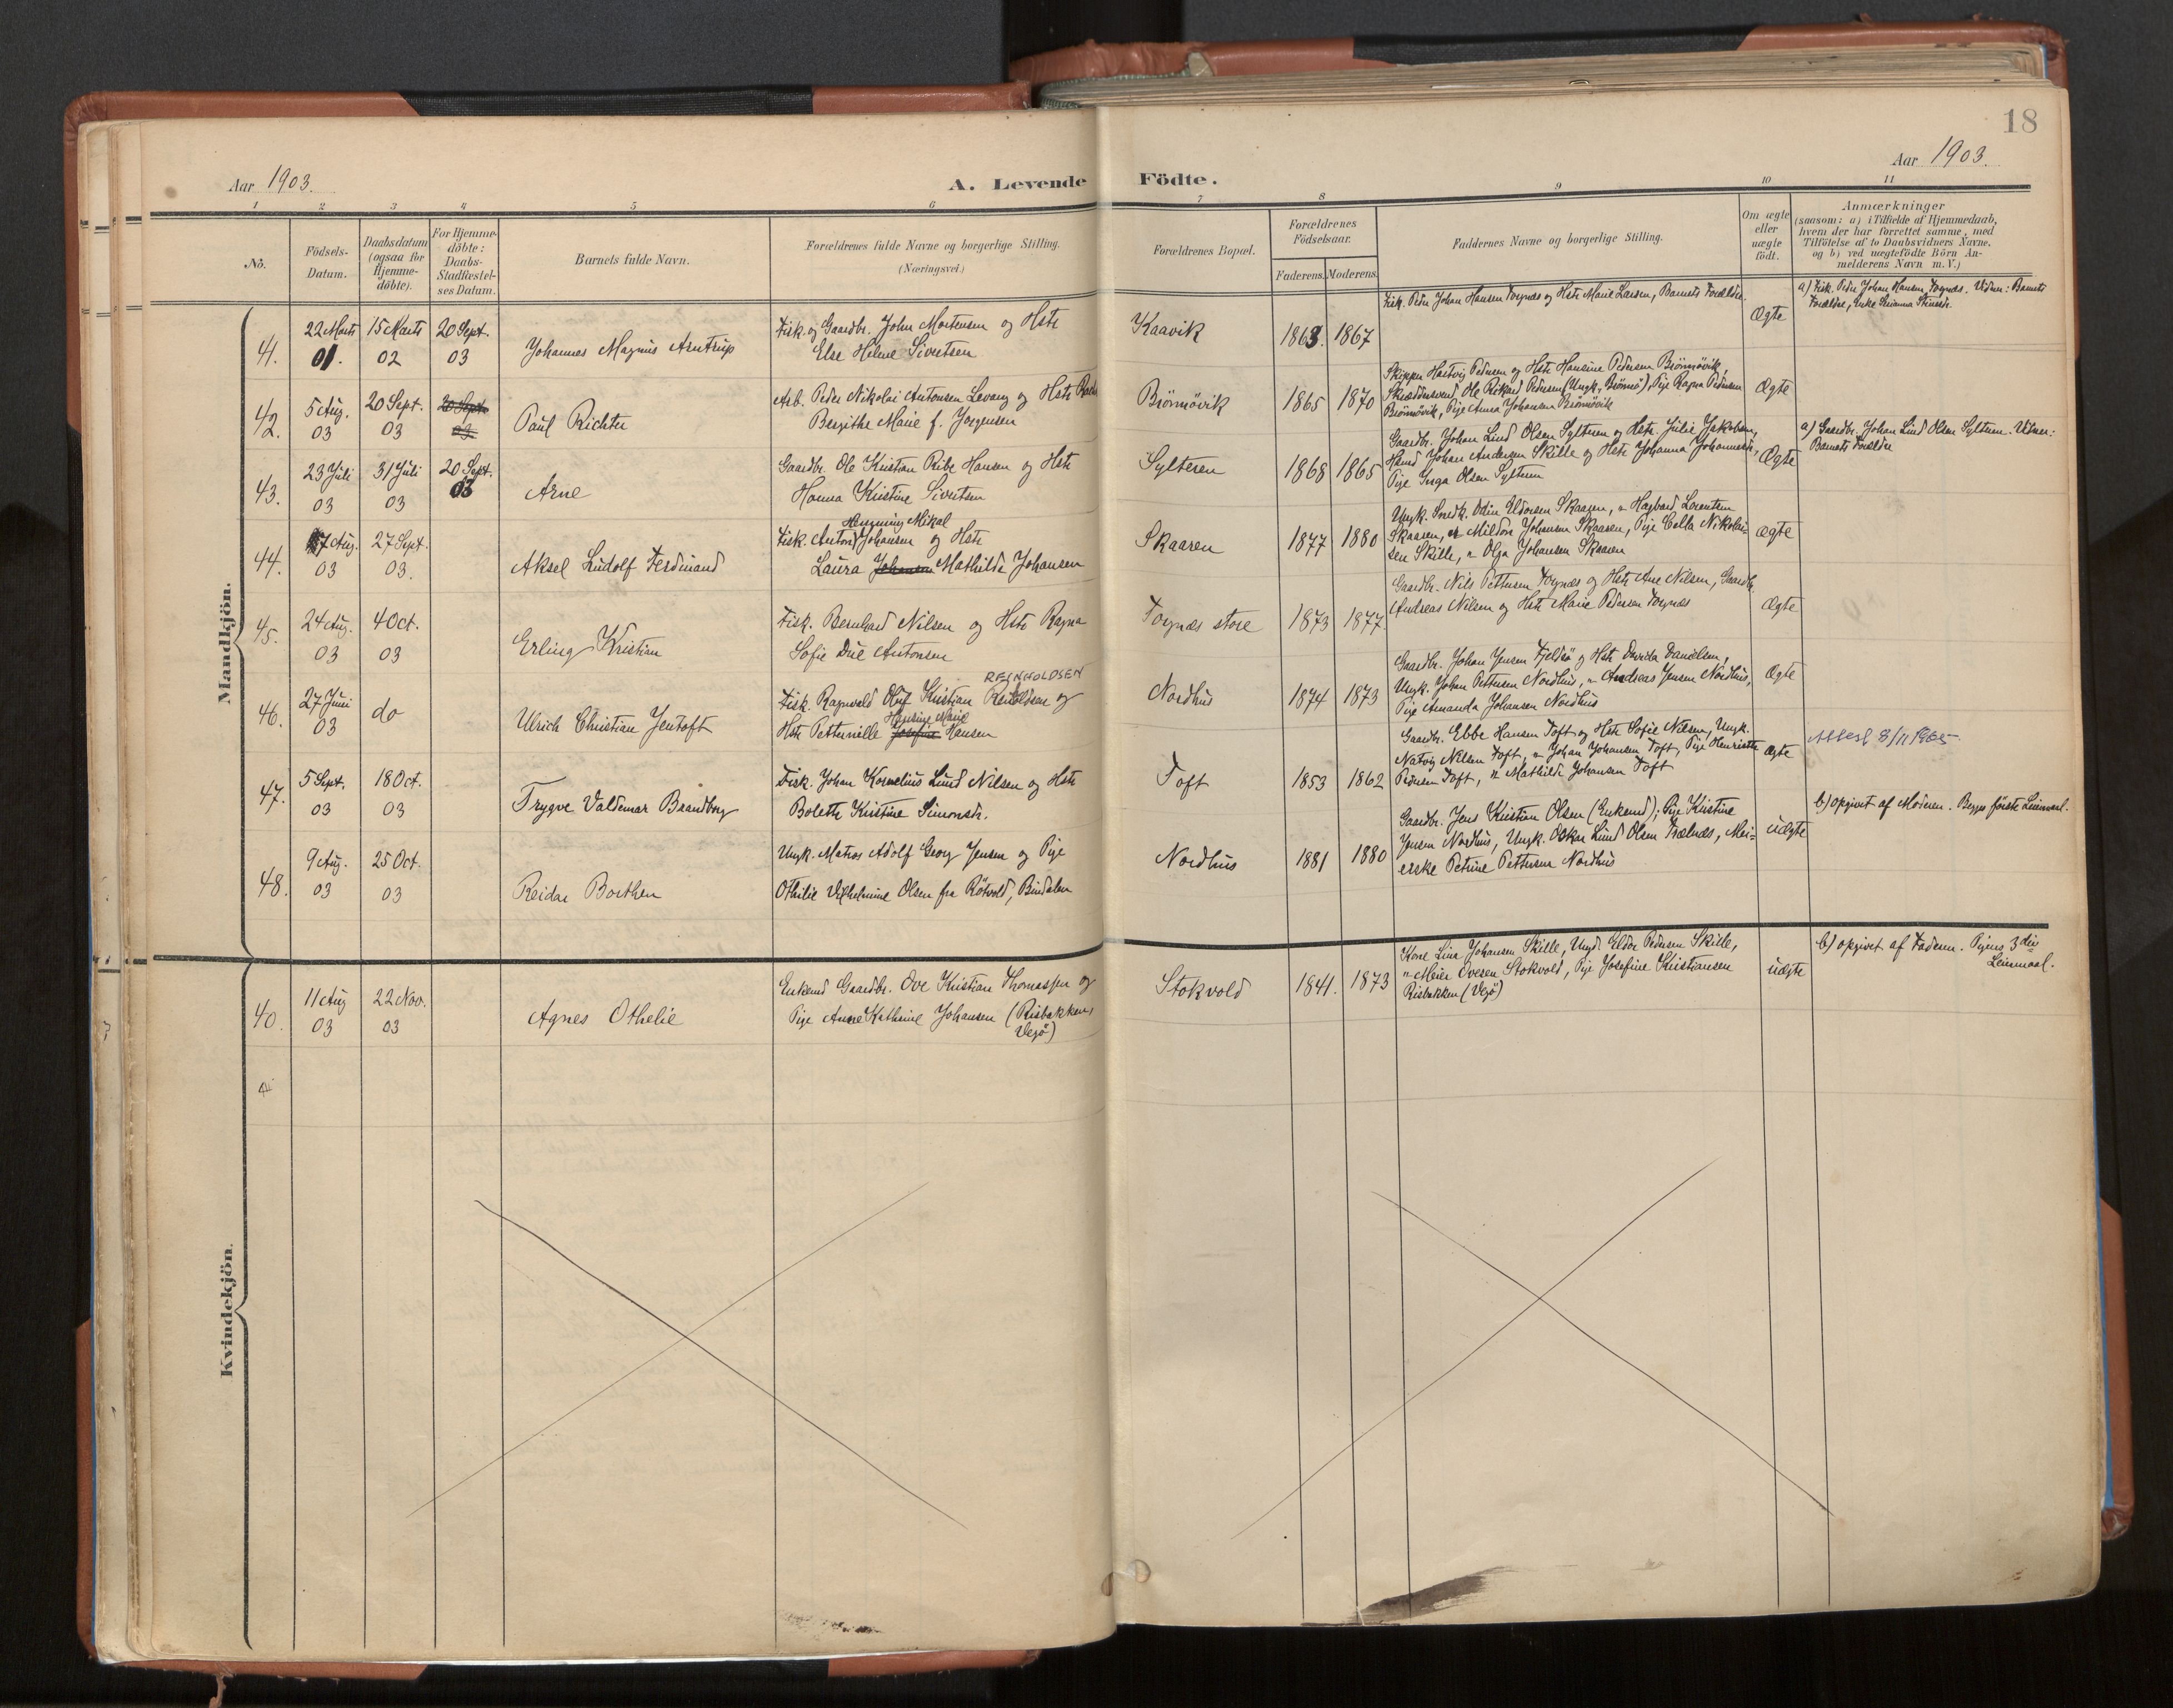 18
Aar 1903.
A. Levende Födte.
Aar 1903.
1 2 3 4 5 6 7 8 9 10 11
No.
Födsels-
Datum.
Daabsdatum
(ogsaa for
Hjemme-
döbte).
For Hjemme-
döbte:
Daabs-
Stadfæstel-
ses Datum.
Barnets fulde Navn.
Forældrenes fulde Navne og borgerlige Stilling.
(Næringsvei.)
Forældrenes Bopæl.
Forældrenes
Födselsaar.
Faderens. Moderens.
Faddernes Navne og borgerlige Stilling.
Om ægte
eller
uægte
födt.
Anmærkninger
(saasom: a) i Tilfælde af Hjemmedaab,
hvem der har forrettet samme, med
Tilföielse af to Daabsvidners Navne,
og b) ved uægtefödte Börn An-
melderens Navn m. V.)
Mandkjön.
41.
22 Marts
01.
15 Marts
02
20 Sept.
03
Johannes Magnus Arntrup
Fisk. og Gaardbr. John Mortensen og Hstr
Else Helene Sivertsen
Kaavik
1863. 1867
Fisk. Peder Johan Hansen Torgnæs og Hstr Marie Larsen, Barnets Forældre.
Ægte
a) Fisk. Peder Johan Hansen Torgnæs. Vidner: Barnets
Forældre, Enke
42.
5 Aug.
03
20 Sept.
03
20 Sept.
03.
Paul Richter
Arb. Peder Nikolai Antonsen Levang og Hstr
Bergithe Marie f. Jörgensen
Brönnövik
1865 1870
Skipper Hartvig Pedersen og Hstr Hansine Pedersen Brönnövik,
Skræddersvend Ole Rikard Pedersen (Ungk., Brönnö), Pige Ragna Pedersen
Brönnövik, Pige Anna Johansen Brönnövik
Ægte
43.
23 Juli
03
31 Juli
03
20 Sept.
03
Arne
Gaardbr. Ole Kristian Ribe Hansen og Hstr
Hanna Kristine Sivertsen
Sylteren
1868 1865
Gaardbr. Johan Lind Olsen Sylteren og Hstr. Julie Jakobsen,
Johan Andersen Skille og Hstr Johanna Johannesdr,
Pige Inga Olsen Sylteren
Ægte
a) Gaardbr. Johan Lind Olsen Sylteren. Vidner:
Barnets Forældre
44.
7 Aug.
03
27 Sept.
03.
Aksel Ludolf Ferdinand
Henning Mikal
Fisk. Anton Johansen og Hstr
Laura Johansen Mathilde Johansen
Skaaren
1877 1880
Ungk. Snedk. Odin Eldorsen Skaaren, " Hagbard Lorentsen
Skaaren, " Milton Johansen Skaaren, Pige Colla Nikolai-
sen Skille, " Olga Johansen Skaaren
ægte
45.
24 Aug.
03
4 Oct.
03
Erling Kristian
Fisk. Bernhard Nilsen og Hstr Ragna
Sofie Due Antonsen
Torgnæs store
1873 1877.
Gaardbr. Nils Pettersen Torgnæs og Hstr Ane Nilsen, Gaardbr.
Andreas Nilsen og Hstr Marie Pedersen Torgnæs
Ægte
46.
27 Juni
03
do
Ulrich Christian Jentoft
REINHOLDSEN
Fisk. Ragnvald Oluf Kristian Reinoldsen og
Hansine Marie
Hstr Petternille Josefine Hansen
Nordhus
1874 1873
Gaardbr. Johan Jensen Fjeldsö og Hstr Davida Danielsen,
Ungk. Johan Pettersen Nordhus, " Andreas Jensen Nordhus,
Pige Amanda Johansen Nordhus
Ægte
47.
5 Sept.
03
18 Oct.
03
Trygve Valdemar Brandborg
Fisk. Johan Kornelius Lund Nilsen og Hstr
Bolette Kristine Simonsdr.
Toft
1853 1862
Gaardbr. Ebbe Hansen Toft og Hstr Sofie Nilsen, Ungk.
Natvig Nilsen Toft, " Johan Johansen Toft, Pige Henriette
Pedersen Toft, " Mathilde Johansen Toft
Ægte
Attest 8/11 1965
48.
9 Aug.
03
25 Oct.
03
Reidar Borthen
Ungk. Matros Adolf Georg Jensen og Pige
Othilie Vilhelmine Olsen fra Rötvold, Bindalen
Nordhus
1881 1880
Gaardbr. Jens Kristian Olsen (Enkemd); Pige Kristine
Jensen Nordhus, Ungk. Oskar Lund Olsen Trælnæs, Mei-
erske Petrine Pettersen Nordhus
uægte
b) opgivet af Moderen. Begges förste Leiermaal.
Kvindekjön.
40.
11 Aug
03
22 Nov.
03
Agnes Othelie
Enkemd Gaardbr. Ove Kristian Thomassen og
Pige Anne Kathrine Johansen (Risbakken,
Vegö)
Stokvold
1841. 1873
Kone Line Johansen Skille, Ungk. Eldor Pedersen Skille,
" Meier Ovesen Stokvold, Pige Josefine Kristiansen
Risbakken (Vegö)
uægte
b) opgivet af Faderen. Pigens 3die
Leiermaal.